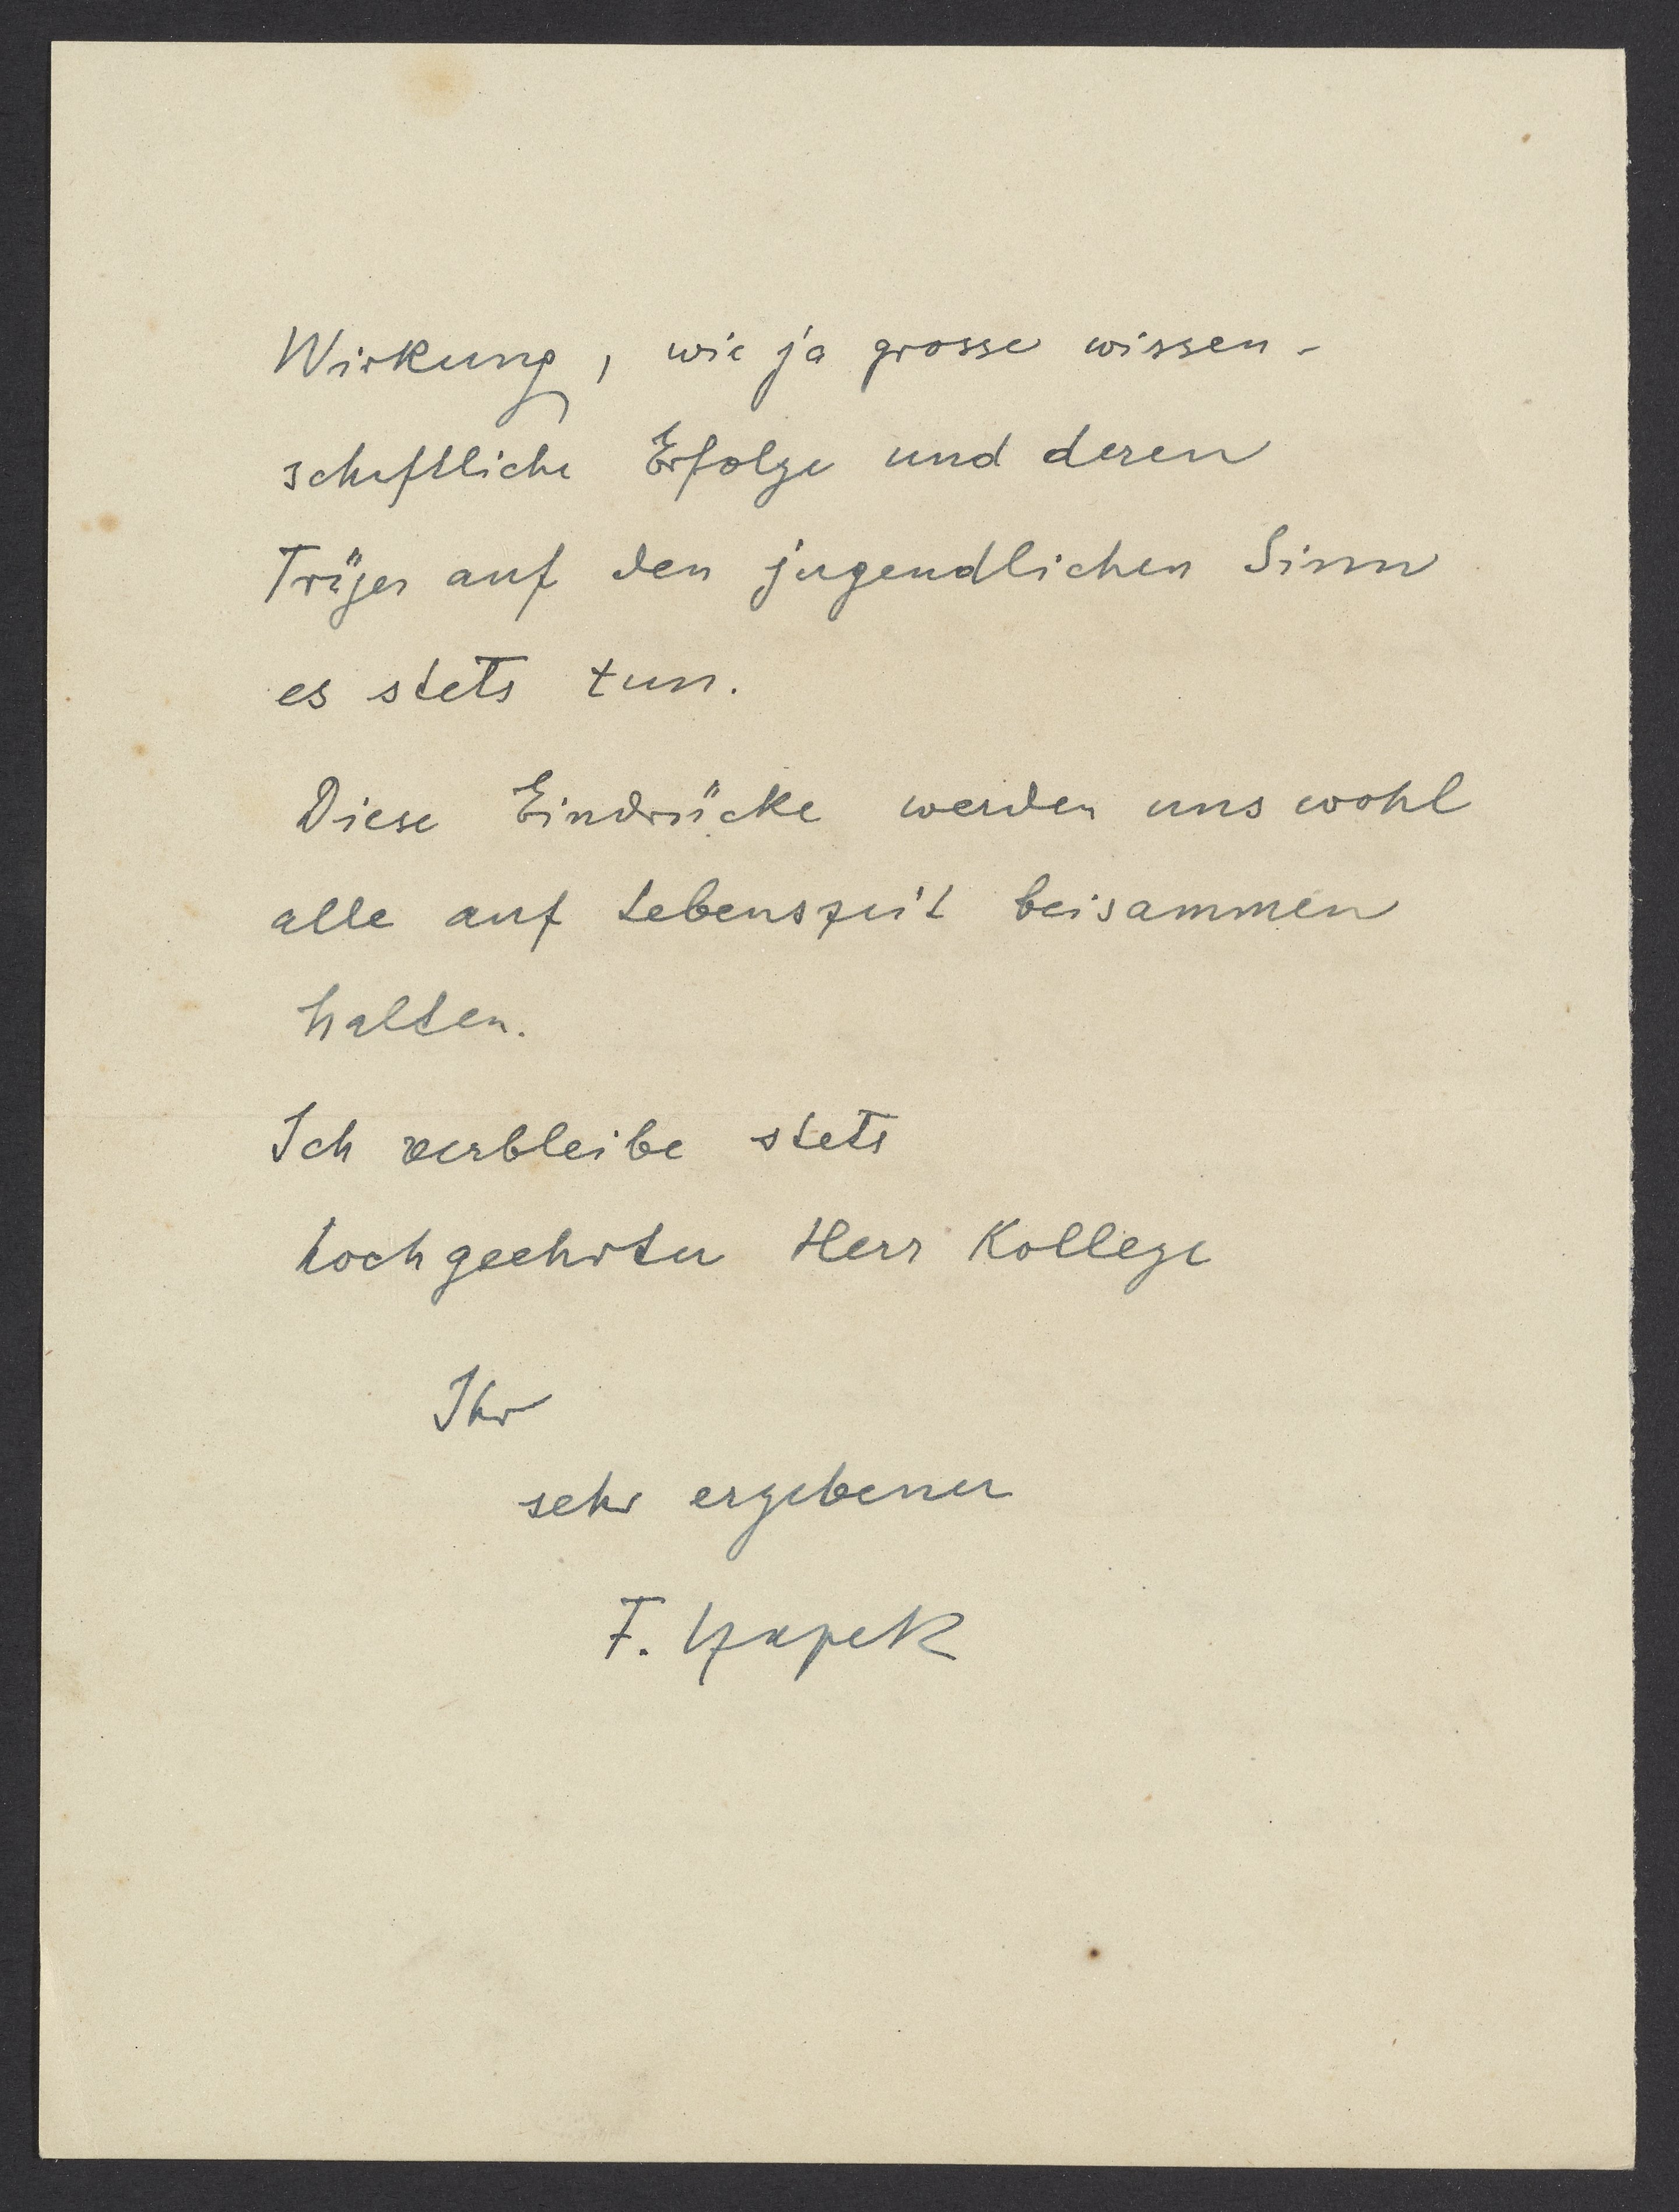 Wirkung, wie ja grosse wissen-
schaftliche Erfolge und deren
Träger auf den jugendlichen Sinn
es stets tun.
Diese Eindrücke werden uns wohl
alle auf Lebenszeit beisammen
halten.
Ich verbleibe stets
hochgeehrter Herr Kollege
Ihr
sehr ergebener
F. Czapek